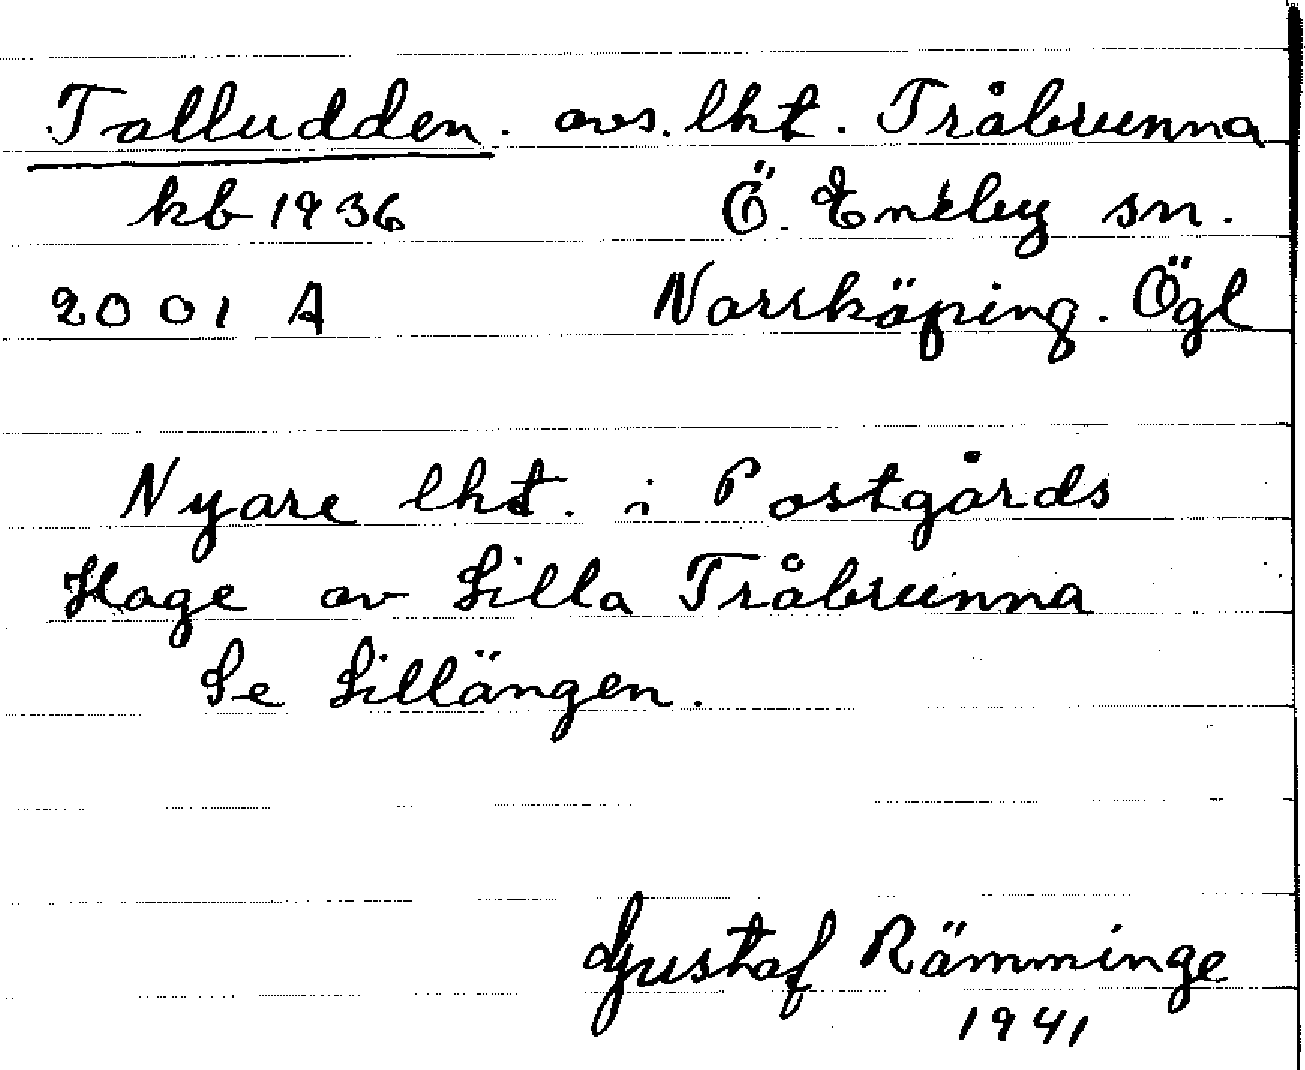 Talludden. avs. lht. Tråbrunna
kb 1936 Ö. Eneby sn.
2001 A Norrköping. Ögl
Nyare lht. i Postgårds
Hage av Lilla Tråbrunna
Se Lillängen.
Gustaf Rämminge
1941